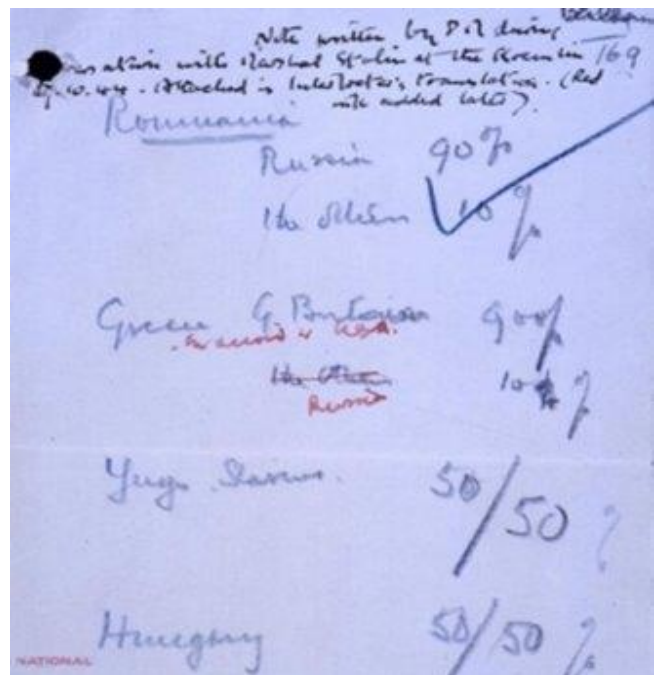 Note written by P.M. during
conversation with Marshal Stalin at the Kremlin 169
9.10.44. Attached is Interpreter's translation. (Red
ink added later).
Roumania
Russia 90%
The others 10%
Greece G. Britain 90%
in accord w. USA.
The others 10%
Russia
Yugoslavia. 50/50 %
Hungary 50/50 %
NATIONAL